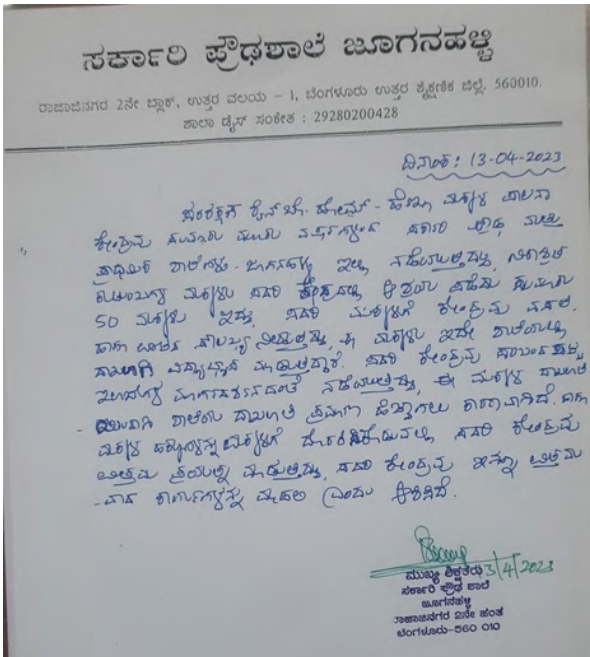 ಸರ್ಕಾರಿ ಪ್ರೌಢಶಾಲೆ ಜೂಗನಹಳ್ಳಿ
ರಾಜಾಜಿನಗರ 2ನೇ ಬ್ಲಾಕ್, ಉತ್ತರ ವಲಯ – 1, ಬೆಂಗಳೂರು ಉತ್ತರ ಶೈಕ್ಷಣಿಕ ಜಿಲ್ಲೆ. 560010.
ಶಾಲಾ ಡೈಸ್ ಸಂಕೇತ : 29280200428
ದಿನಾಂಕ: 13-04-2023
ಹೆಣ್ಣು ಮಕ್ಕಳ ಪಾಲನಾ
ಕೇಂದ್ರವು ಸುಮಾರು ಮೂರು ವರ್ಷಗಳಿಂದ ಸರ್ಕಾರಿ ಪ್ರೌಢ ಮತ್ತು
ಪ್ರಾಥಮಿಕ ಶಾಲೆಗಳು - ಜೂಗನಹಳ್ಳಿ ಇಲ್ಲಿ ನಡೆಯುತ್ತಿದ್ದು,
ಮಕ್ಕಳು ಸದರಿ ಕೇಂದ್ರದಲ್ಲಿ ಆಶ್ರಯ ಪಡೆದು ಸುಮಾರು
50 ಮಕ್ಕಳು ಇದ್ದು, ಸದರಿ ಮಕ್ಕಳಿಗೆ ಕೇಂದ್ರವು ವಸತಿ
ಹಾಗೂ ಊಟದ ಸೌಲಭ್ಯ ನೀಡುತ್ತಿದ್ದು, ಈ ಮಕ್ಕಳು ಇದೇ ಶಾಲೆಯಲ್ಲಿ
ದಾಖಲಾಗಿ ವಿದ್ಯಾಭ್ಯಾಸ ಮಾಡುತ್ತಿದ್ದಾರೆ. ಸದರಿ ಕೇಂದ್ರವು
ಇಲಾಖೆಯ ಮಾರ್ಗದರ್ಶನದಂತೆ ನಡೆಯುತ್ತಿದ್ದು, ಈ ಮಕ್ಕಳ ದಾಖಲಾತಿ
ಶಾಲೆಯ ದಾಖಲಾತಿ ಪ್ರಮಾಣ ಹೆಚ್ಚಾಗಲು ಕಾರಣವಾಗಿದೆ.
ಮಕ್ಕಳ ಹಕ್ಕುಗಳನ್ನು ಮಕ್ಕಳಿಗೆ ದೊರಕಿಸಿಕೊಡುವಲ್ಲಿ ಸದರಿ ಕೇಂದ್ರವು
ಉತ್ತಮ ಪ್ರಯತ್ನ ಮಾಡುತ್ತಿದ್ದು, ಸದರಿ ಕೇಂದ್ರವು ಇನ್ನೂ ಉತ್ತಮ
-ವಾದ ಕಾರ್ಯಗಳನ್ನು ಮಾಡಲಿ ಎಂದು ಆಶಿಸಿದೆ.
13/4/2023
ಮುಖ್ಯ ಶಿಕ್ಷಕರು
ಸರ್ಕಾರಿ ಪ್ರೌಢ ಶಾಲೆ
ಜೂಗನಹಳ್ಳಿ
ರಾಜಾಜಿನಗರ 2ನೇ ಹಂತ
ಬೆಂಗಳೂರು-560 010